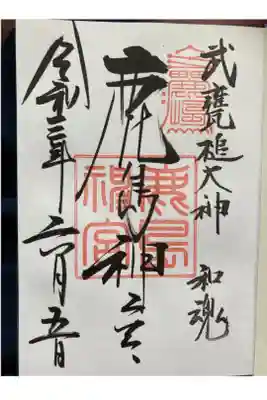 武甕槌大神 和魂
鹿島神宮
鹿島
神宮
令和三年 月五日